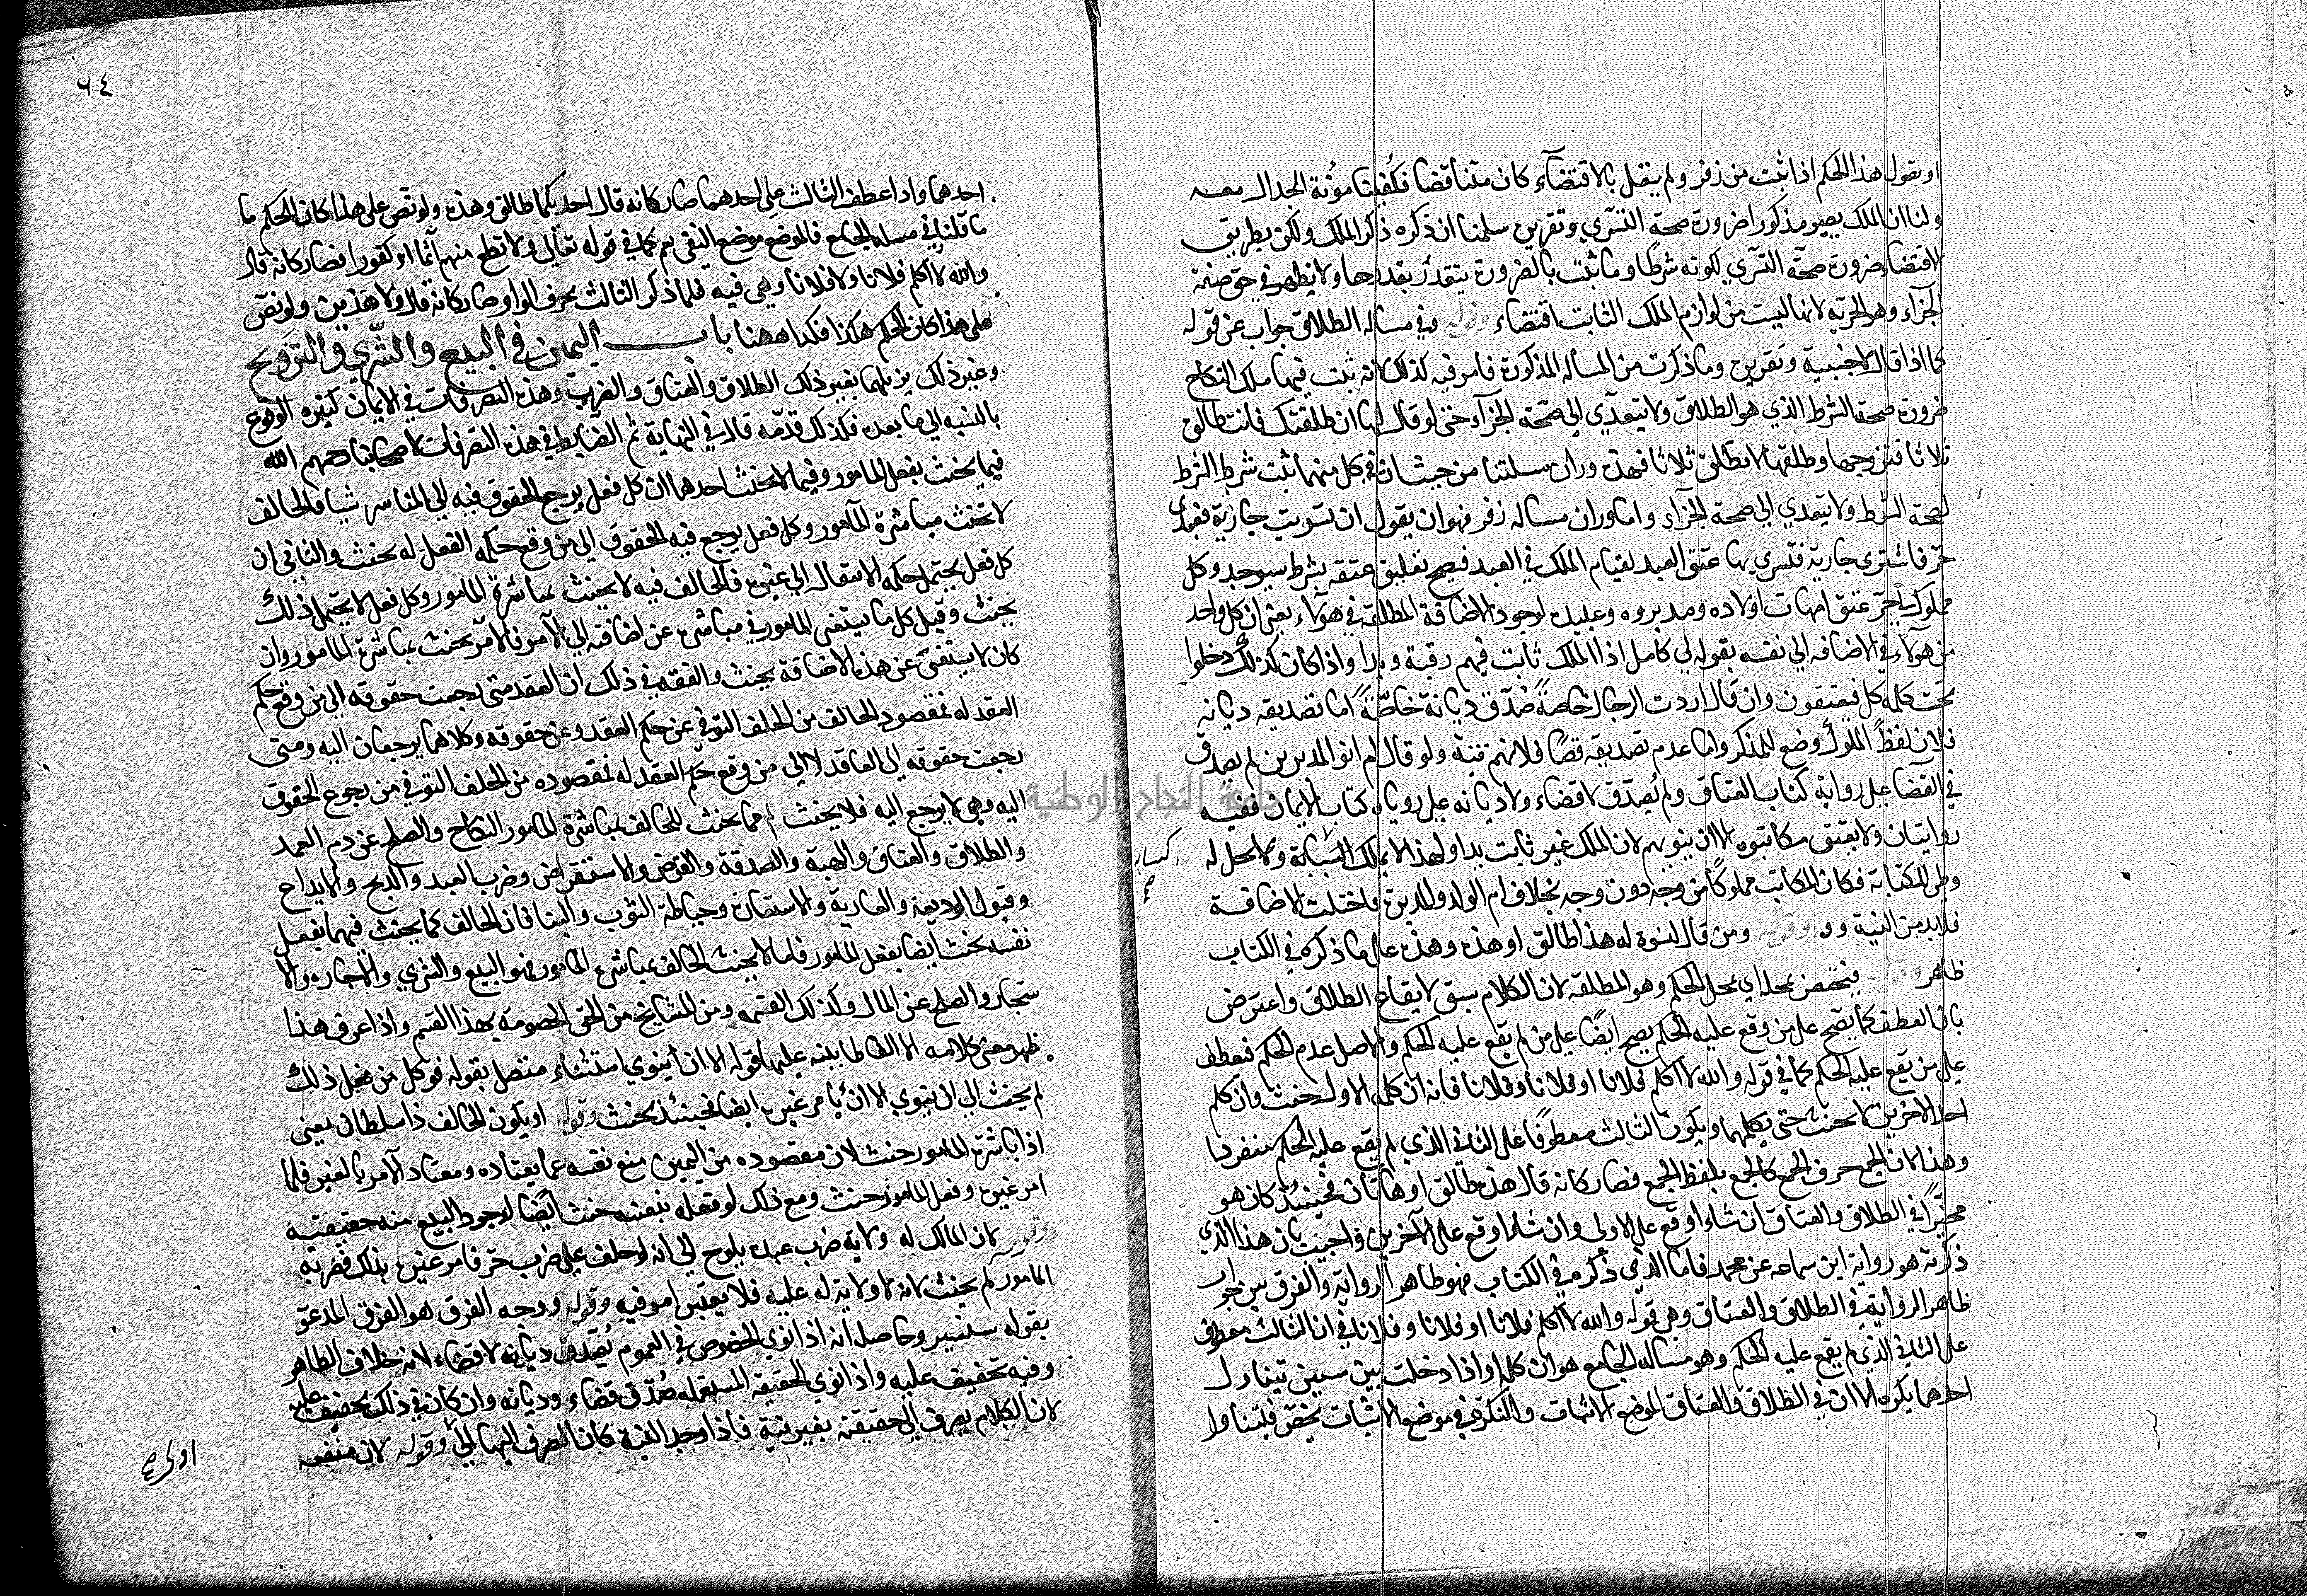 او يقول هذا الحكم اذا ثبت من زفر ولم يقل بالاقتضآء كان متناقضا فكُفينا مؤنة الجدال معه
ولنا ان الملك يصير مذكورا ضرورة صحة التسري وتقريره سلمنا ان ذكره ذكر الملك ولكن بطريق
الاقتضا ضرورة صحة التسري لكونه شرطا وما ثبت بالضرورة يتقدر بقدرها ولا يظهر في حق صحة
الجزآء وهو الحرية لانها ليست من لوازم الملك الثابت اقتضاء وقوله وفي مسالة الطلاق جواب عن قوله
كما اذا قال لاجنبية وتقريره وما ذكرت من المسالة المذكورة فامر فيه كذلك لانه ثبت فيها ملك النكاح
ضرورة صحة الشرط الذي هو الطلاق ولا يتعدي الي صحة الجزآء حتى لو قال لها ان طلقتك فانت طالق
ثلاثا فتزوجها وطلقها لا تطلق ثلاثا فهذه وزان مسلتنا من حيث ان في كل منهما ثبت شرط الشرط
لصحة الشرط ولا يتعدي الي صحة الجزآء واما وزان مسالة زفر فهو ان يقول ان تسريت جارية فعبدي
حر فاشترى جارية فتسري بها عتق العبد لقيام الملك في العبد فيصح تعليق عتقه بشرط سيوجد وكل
مملوك لي حرّ عتق امهات اولاده ومدبروه وعبيده لوجود الاضافة المطلقة في هولاء يعني ان كل واحد
من هولاء في الاضافه الي نفسه بقوله لي كامل اذا الملك ثابت فيهم رقبة ويدا واذا كان كذلك دخلوا
تحت كلمة كل فيعتقون وان قال اردت الرجال خاصةً صُدّق ديانة خاصّةً اما تصديقه ديانه
فلان لفظ المملوك وضع للمذكر واما عدم تصديقه قضا فلانهم تنبه ولو قال لم انو المدبرين لم يصدق
في القضا على رواية كتاب العتاق ولم يُصدّق لا قضاء ولا ديانه على رواية كتاب الايمان ففيه
روايتان ولا يعتق مكاتبوه الا ان ينويهم لان الملك غير ثابت يدا ولهذا لا يملك اكسابه ولا يحل له
اكسابه صح
وطى المكاتبة فكان المكاتب مملوكًا من وجه دون وجه بخلاف ام الولد والمدبرة فاختلت الاضافة
فلا بد من النية وقوله ومن قال لنسوة له هذه طالق او هذه وهذه على ما ذكره في الكتاب
ظاهر وقوله فيختص بمحله اي بمحل الحكم وهو المطلقه لان الكلام سبق لايقاع الطلاق واعترض
بان العطف كما يصح على من وقع عليه الحكم يصح ايضًا على من لم يقع عليه الحكم والاصل عدم الحكم فيعطف
على من يقع عليه الحكم كما في قوله والله لا اكلم فلانا او فلانا وفلانا فانه ان كلم الاول حنث وان كلم
احد الاخرين لا يحنث حتى يكلمهما ويكون الثالث معطوفًا على الثاني الذي لم يقع عليه الحكم منفردا
وهذا لان الجمع بحرف الجمع كالجمع بلفظ الجمع فصار كانه قال هذه طالق او هاتان فحينئذ كان هو
مخيّرًا في الطلاق والعتاق ان شاء اوقع على الاولى وان شاء اوقع على الآخرين واجيب بان هذا الذي
ذكرته هو رواية ابن سماعه عن محمد فاما الذي ذكره في الكتاب فهو ظاهر الرواية والفرق بين جواب
ظاهر الرواية في الطلاق والعتاق وهي قوله والله لا اكلم فلانا او فلانا وفلانا في ان الثالث معطوف
على الثاني الذي لم يقع عليه الحكم وهو مسالة الجامع هو ان كلمة او اذا دخلت بين سيين تناول
احدهما بكره الا ان في الطلاق والعتاق الموضع الاثبات والنكرة في موضع الاثبات يخص فيتناول
٦٤
احدهما واذا عطف الثالث على احدهما صار كانه قال احدكما طالق وهذه ولو نص على هذا كان الحكم ما
ما قلنا في مسالة الجامع فالموضع موضع النفي يعم كما في قوله تعالى ولا تطع منهم آثما او كفورا فصار كانه قال
والله لا اكلم فلانا ولا فلانا وهي فيه فلما ذكر الثالث بحرف الواو صار كانه قال ولا هذين ولو نص
على هذا كان الحكم هكذا فكذا ههنا باب اليمين في البيع والشرى والتزويج
وغير ذلك يريد بها بغير ذلك الطلاق والعتاق والضرب وهذه التصرفات في الايمان كثيره الوقوع
بالنسبه الي ما بعده فكذلك قدّمه قال في النهاية ثم الضابط في هذه التصرفات لاصحابنا رحمهم الله
فيما يحنث بفعل المامور وفيما لا يحنث احدهما ان كل فعل يرجع الحقوق فيه الي المباشر شيا فالحالف
لا يحنث بمباشرة المامور وكل فعل يرجع فيه الحقوق الي من وقع حكم الفعل له يحنث والثاني ان
كل فعل يحتمل حكمه الانتقال الي غيره فالحالف فيه لا يحنث بمباشرة المامور وكل فعل لا يحتمل ذلك
يحنث وقيل كل ما يستغنى المامور في مباشرته عن اضافته الي الآمر فالآمر يحنث بمباشرة المامور وان
كان لا يستغنى عن هذه الاضافة يحنث والفقه في ذلك ان العقد متى رجعت حقوقه الي من وقع حكم
العقد له فمقصود الحالف من الحلف التوقي عن حكم العقد وعن حقوقه وكلاهما يرجعان اليه ومتى
رجعت حقوقه الي العاقد لا الي من وقع حكم العقد له فمقصوده من الحلف التوقي من رجوع الحقوق
اليه وهي لا يرجع اليه فلا يحنث ثم مما يحنث الحالف بمباشرة المامور النكاح والصلح عن دم العمد
والطلاق والعتاق والهبة والصدقة والقرض والاستقراض وضرب العبد والذبح والايداع
وقبول الوديعة والعارية والاستعارة وخياطة الثوب والبنا فان الحالف كما يحنث فيهما بفعل
نفسه يحنث ايضا بفعل المامور فاما لا يحنث الحالف بمباشرة المامور فهو البيع والشري والاجاره والا
ستجار والصلح عن المال وكذلك القسمه ومن المشايخ من الحق الخصومة بهذا القسم واذا عرف هذا
ظهر معنى كلامه الا الفاظا ينبه عليها قوله الا ان ينوي استثناء متصل بقوله فوكل من فعل ذلك
لم يحنث الي ان ينوي الا ان يامر غيره ايضا فحينئذ يحنث وقوله او يكون الحالف ذا سلطان يعني
اذا باشره المامور حنث لان مقصوده من اليمين منع نفسه عما يعتاده ومعتاد الآمر بالغير فلما
امر غيره وفعل المامور حنث ومع ذلك لو فعله بنفسه حنث ايضًا لوجود البيع منه حقيقته
وقوله لان المالك له ولاية ضرب عبده يلوح الي انه لو حلف على ضرب حرّ فامر غيره بذلك فضربه
المامور لم يحنث لانه لا ولاية له عليه فلا يعتبر امره فيه وقوله ووجه الفرق هو الفرق المدعو
بقوله سنشير وحاصله انه اذا نوى الخصوص في العموم يُصدّق ديانه لا قضاء لانه خلاف الظاهر
وفيه تخفيف عليه واذا نوى الحقيقة المستعملة صُدّق قضاء وديانه وان كان في ذلك تخفيف عليه
لان الكلام يصرف الى حقيقته بغير نية فاذا وجد النية كان الصرف اليها اولى وقوله لان منفعه